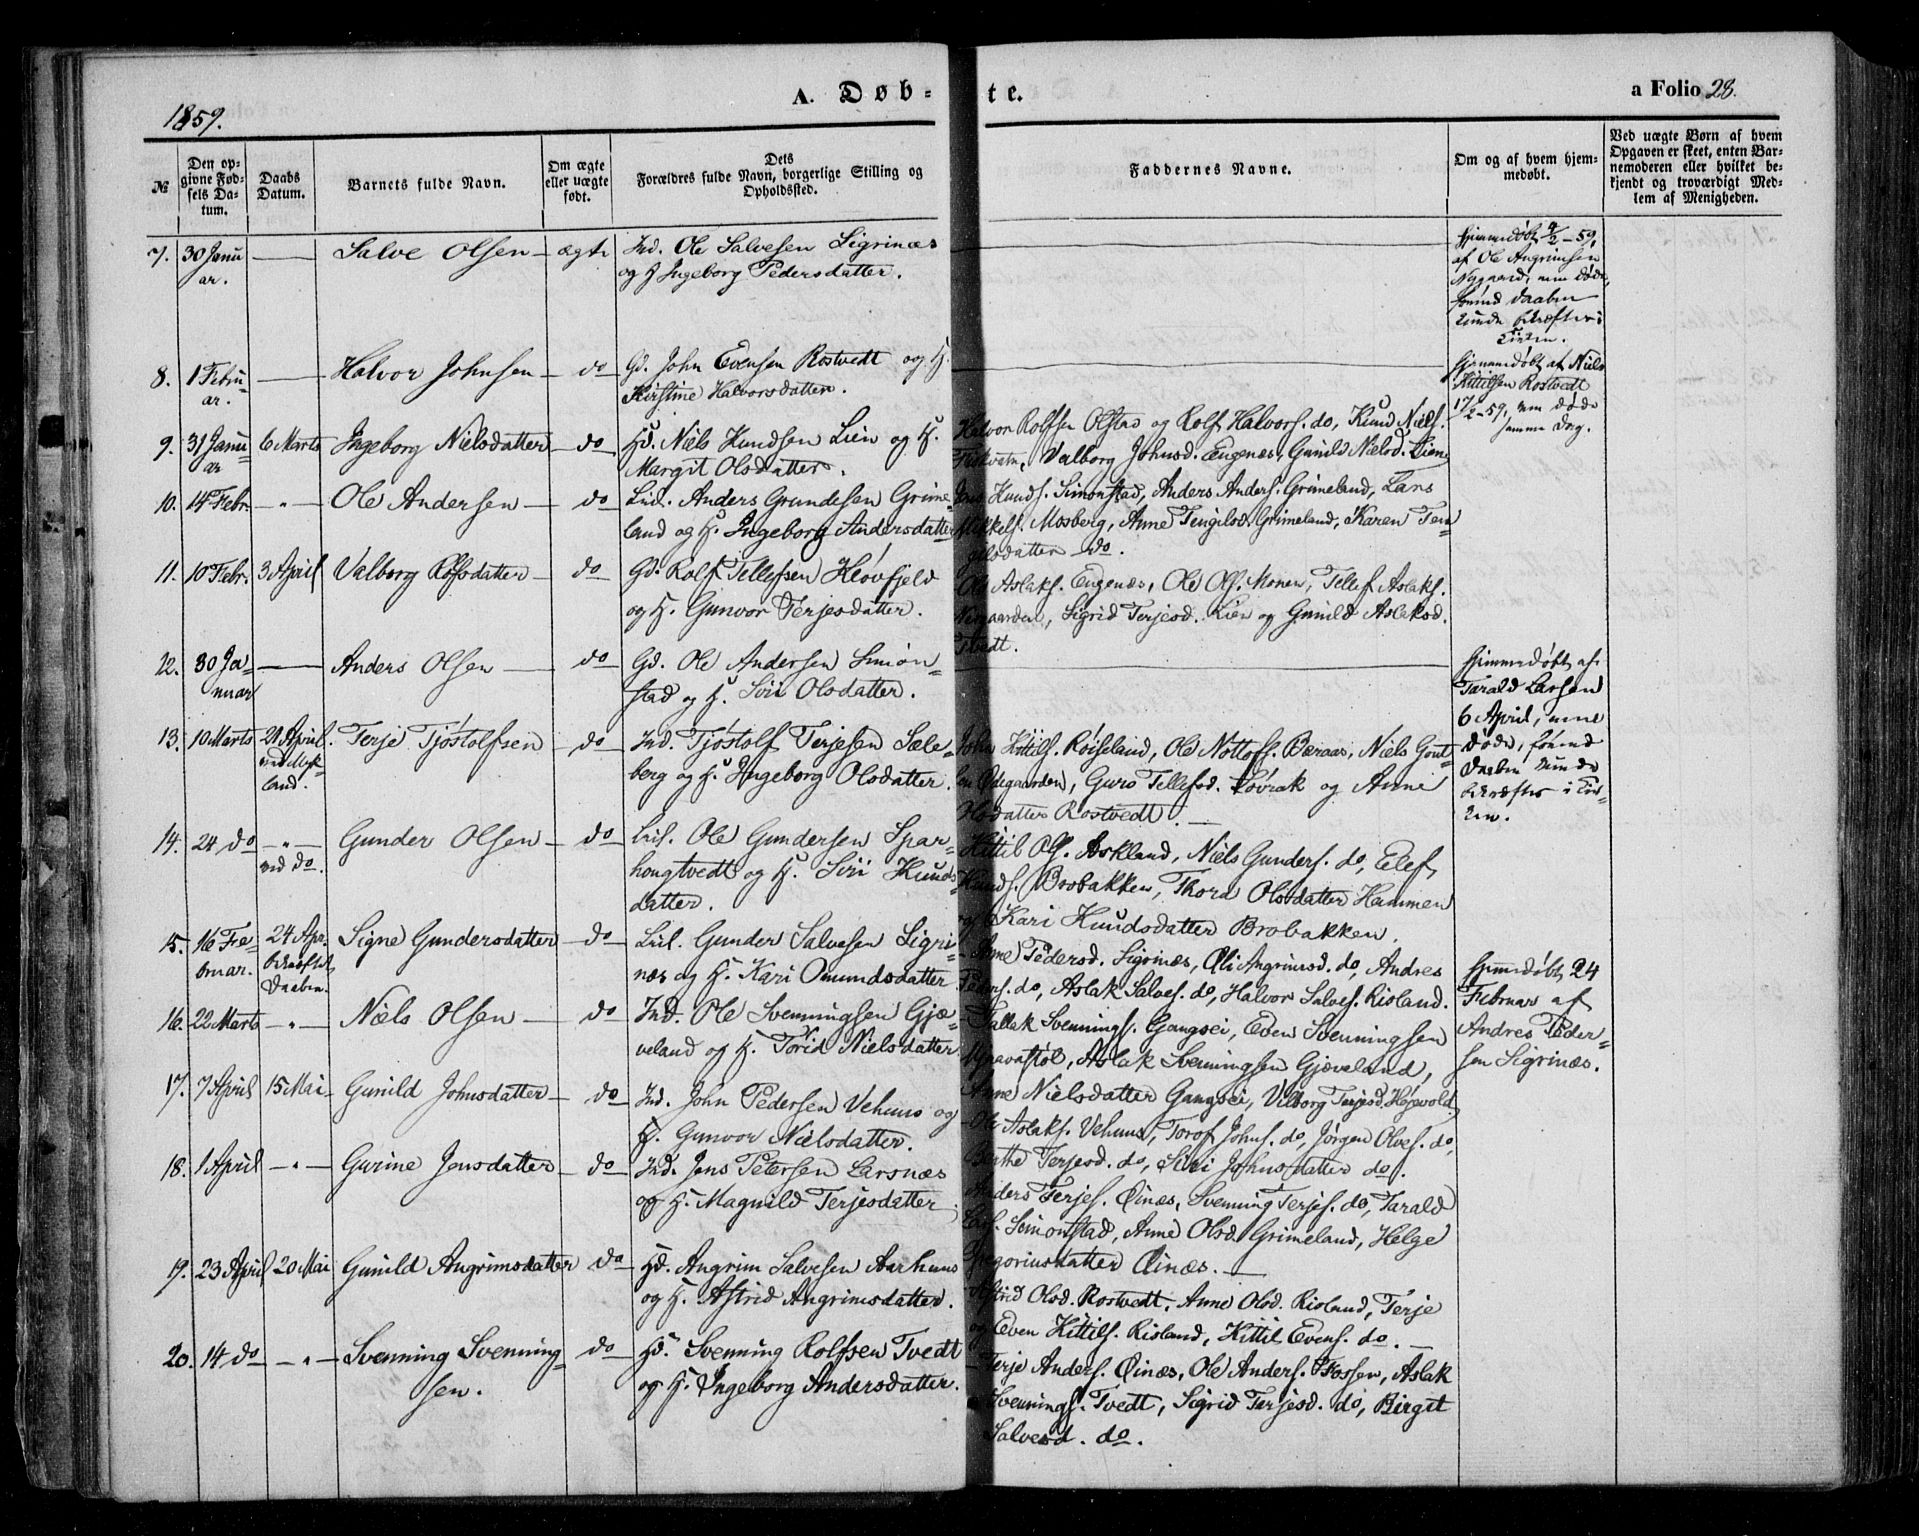 1859.
A. Døb-
te.
a Folio 28.
№
Den op-
givne Fød-
sels Da-
tum.
Daabs
Datum.
Barnets fulde Navn.
Om ægte
eller uægte
født.
Dets
Forældres fulde Navn, borgerlige Stilling og
Opholdssted.
Faddernes Navne.
Om og af hvem hjem-
medøbt.
Ved uægte Børn af hvem
Opgaven er skeet, enten Bar-
nemoderen eller hvilket be-
kjendt og troværdigt Med-
lem af Menigheden.
7. 30 Janu
ar.
Salve Olsen
ægte
Ind. Ole Salvesen Sigrinæs
og H. Ingeborg Pedersdatter.
Hjemmedøbt 9/2-59,
af Ole Angrimsen
Nygaard, men døde,
forind Daaben
kunde bekræftes i
Kirken.
8. 1 Febru-
ar.
Halvor Johnsen
do
Gd. John Evensen Rostvedt og H.
Kirstine Halvorsdatter.
Hjemmedøbt af Niels
Kittilsen Rostvedt
17/2-59, men døde
samme Dag.
9. 31 Janu-
ar
6 Marts
Ingeborg Nielsdatter
do
Hd. Niels Knudsen Lien og H.
Margit Olsdatter.
Halvor Rolfsen Olstad og Rolf Halvors. do, Knud Niels.
Fiskvatn, Valborg Johnsd. Eugenæs, Gunild Nielsd. Liene
10. 14 Febr.
- " -
Ole Andersen
do
Lud. Anders Grundesen Grime-
land og H. Ingeborg Andersdatter
Jens Knuds. Simonstad, Anders Anders. Grimeland, Lars
Mikkels. Mosberg, Anne Tengilsd. Grimeland, Karen Ten-
gilsdatter do.
11. 10 Febr.
3 April
Valborg Rolfsdatter
do
Gd. Rolf Tellefsen Hløvfjeld
og H. Gunvor Terjesdatter.
Ole Aslaks. Eugenæs, Ole Ols. Monen, Tellef Aslaks.
Nergaarden, Sigrid Terjesd. Lien og Gunild Aslaksd.
Tvedt.
22. 30 Ja-
nuar
Anders Olsen
do
Gd. Ole Andersen Simon-
stad og H. Siri Olsdatter.
Hjemmedøbt af
Tarald Larsen
6 April, men
døde, forind
Daaben kunde
bekræftes i Kir-
ken.
13. 10 Marts
21 April
ved Myk-
land.
Terje Tjøstolfsen
do
Ind. Tjøstolf Terjesen Sæle-
berg og H. Ingeborg Olsdatter.
John Kittils. Røiseland, Ole Nottofs. Beraas, Niels Gout-
en Ødegaarden, Guro Tellefsd. Løvrak og Anne
Olsdatter Rostvedt.
14. 24 do
- " -
ved do.
Gunder Olsen
do
Lui. Ole Gundersen Spar-
hougtvedt og H. Siri Knuds-
datter.
Kittil Ols. Askland, Niels Gunders. do, Elef
Knuds. Brobakken, Thora Olsdatter Hammen
og Kari Knudsdatter Brobakken.
15. 16 Fe-
bruar.
24 Apr.
bekræftet
Daaben.
Signe Gundersdatter
do
Lui. Gunder Salvesen Sigri-
næs og H. Kari Omundsdatter
Anne Pedersd. Sigrinæs, Oli Angrimsd. do, Andres
Peders. do, Aslak Salves. do, Halvor Salves. Risland.
Hjemmedøbt 24
Februar af
Andres Peder-
sen Sigrinæs.
16. 22 Marts
- " -
Niels Olsen
do
Ind. Ole Svenningsen Gjæ-
veland og H. Torid Nielsdatter
Tallak Svennings. Gangsei, Even Svenningsen
Aslak Svenningsen Gjæveland,
Anne Nielsdatter Gangsei, Vilborg Terjesd. Høgevold
17. 7 April
15 Mai
Gunild Johnsdatter
do
Ind. John Pedersen Vehuus og
H. Gunvor Nielsdatter.
Ole Aslaks. Vehuus, Torof Johns. do, Jørgen Olves. do,
Berthe Terjesd. do, Siri Johnsdatter do.
18. 1 April
- " -
Gurine Jensdatter
do
Ind. Jens Petersen Larsnæs
og H. Magnild Terjesdatter
Anders Terjes. Øinæs, Svenning Terjes. do, Tarald
Lars. Simonstad, Anne Olsd. Grimeland, Helge
Gregoriusdatter Øinæs.
19. 23 April
20 Mai
Gunild Angrimsdatter
do
Hd. Angrim Salvesen Aarhuus
og H. Astrid Angrimsdatter.
Astrid Olsd. Rostvedt, Anne Olsd. Risland, Terje
og Even Kittils. Risland, Kittil Evens. do.
20. 14 do
- " -
Svenning Svenning-
sen.
do
Hd. Svenning Rolfsen Tvedt
og H. Ingeborg Andersdatter.
Terje Anders. Øinæs, Ole Anders. Fossen, Aslak
Svennings. Tvedt, Sigrid Terjesd. do, Birgit
Salvesd. do.